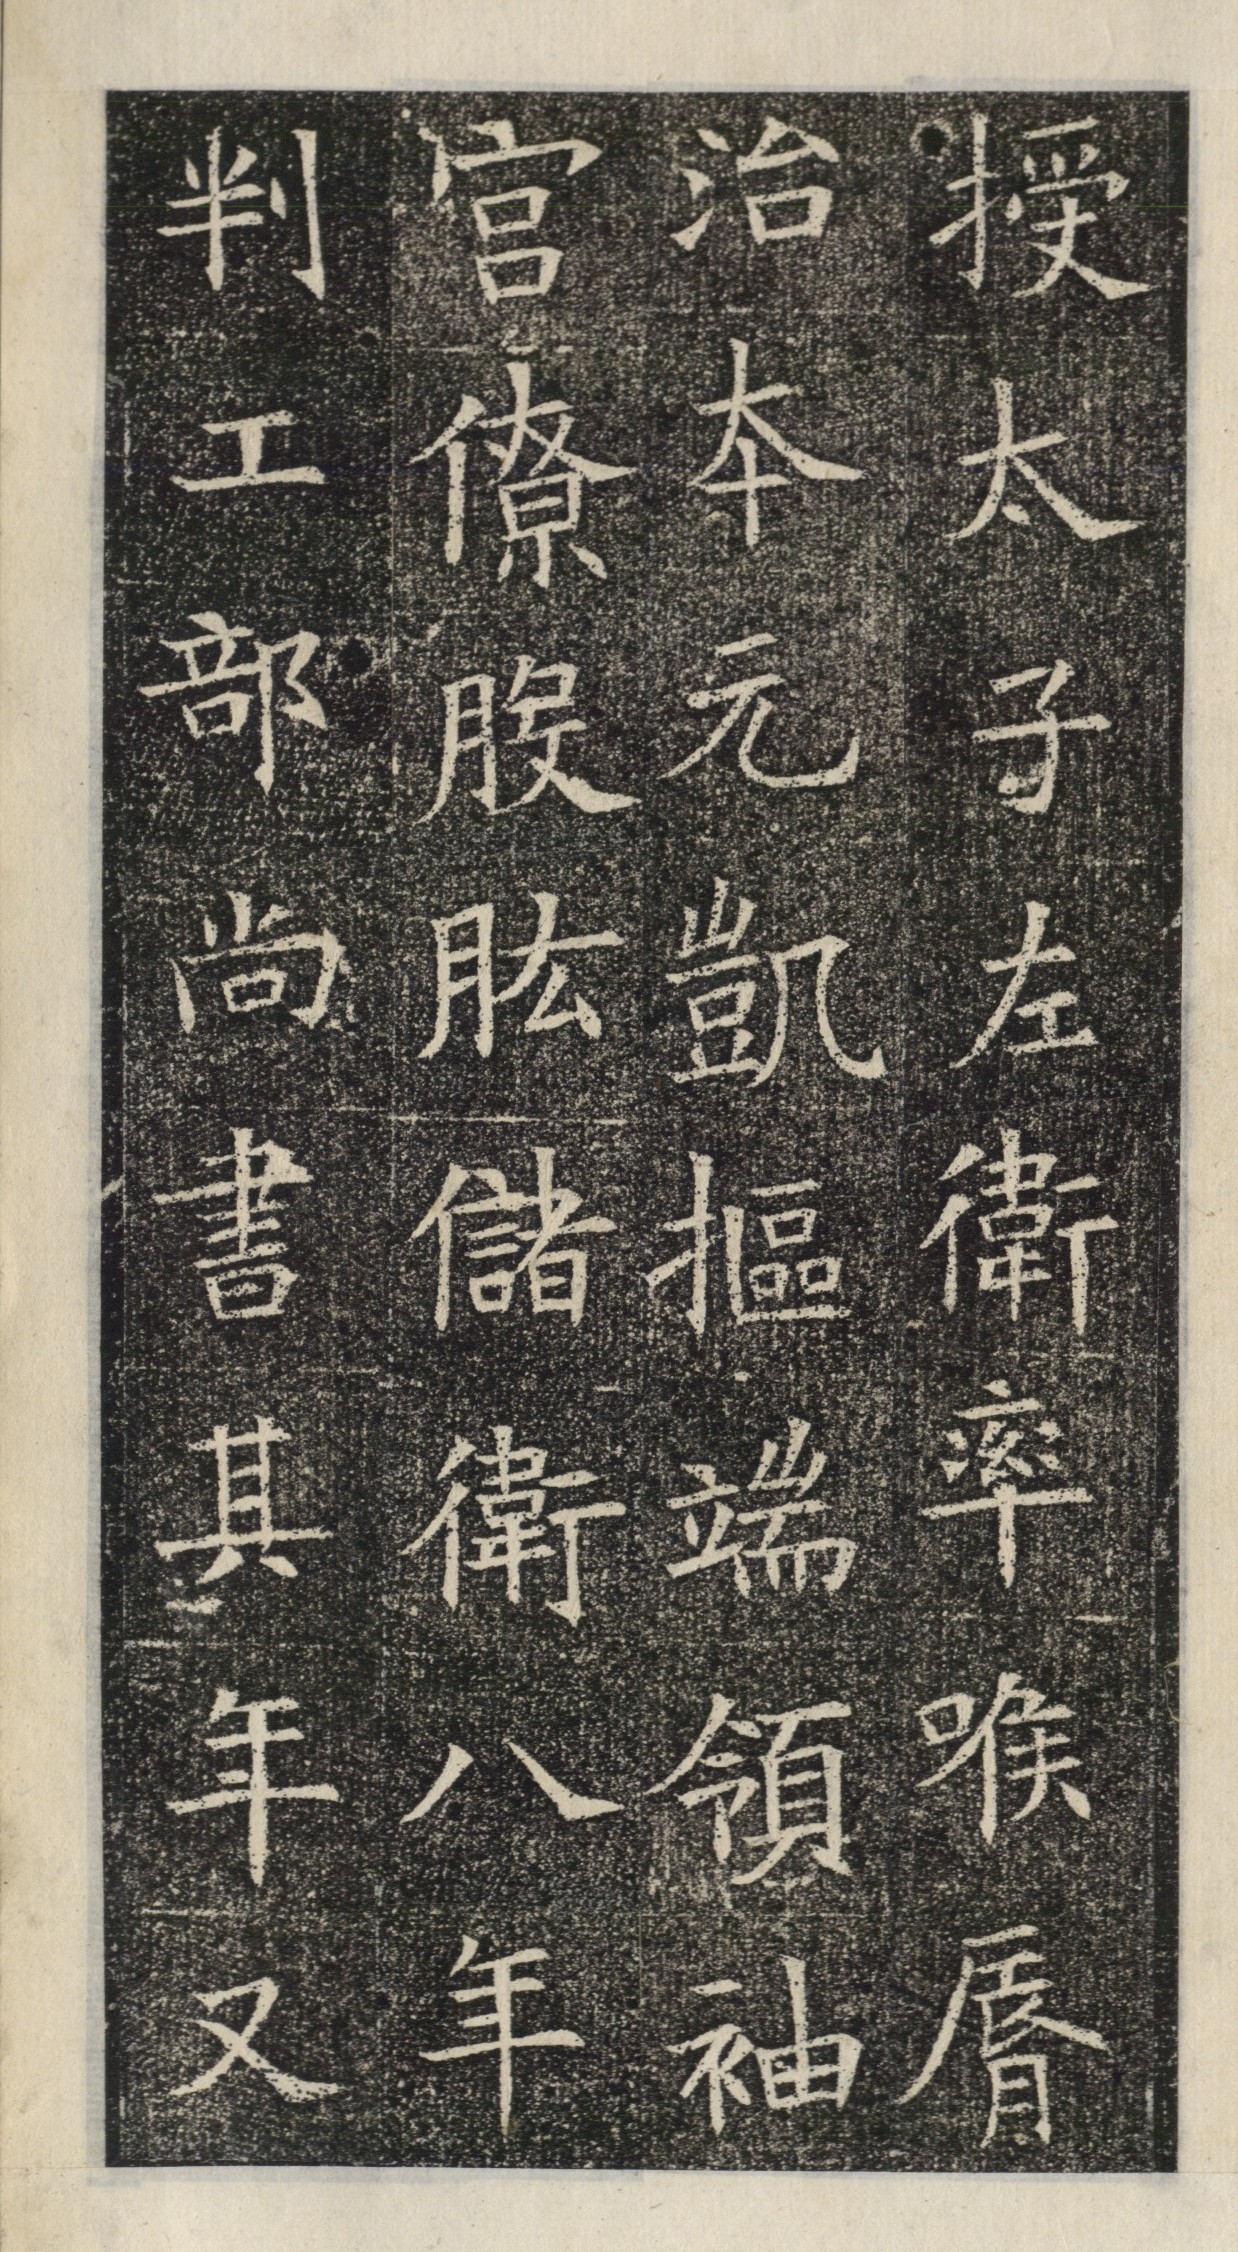 授太子左衛率喉脣
治本元凱摳端領袖
宫僚股肱儲衛八年
判工部尚書其年又